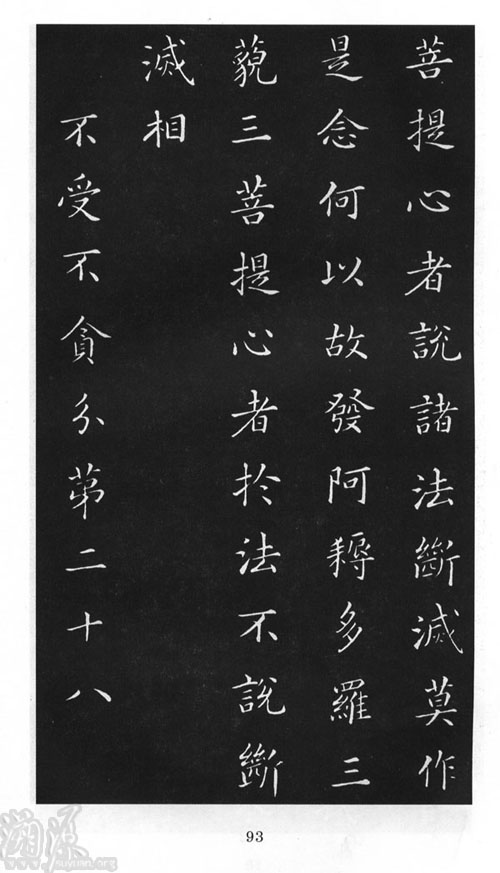 菩提心者說諸法斷滅莫作
是念何以故發阿耨多羅三
藐三菩提心者於法不說斷
滅相
不受不貪分第二十八
93
溯源
suyuan.org